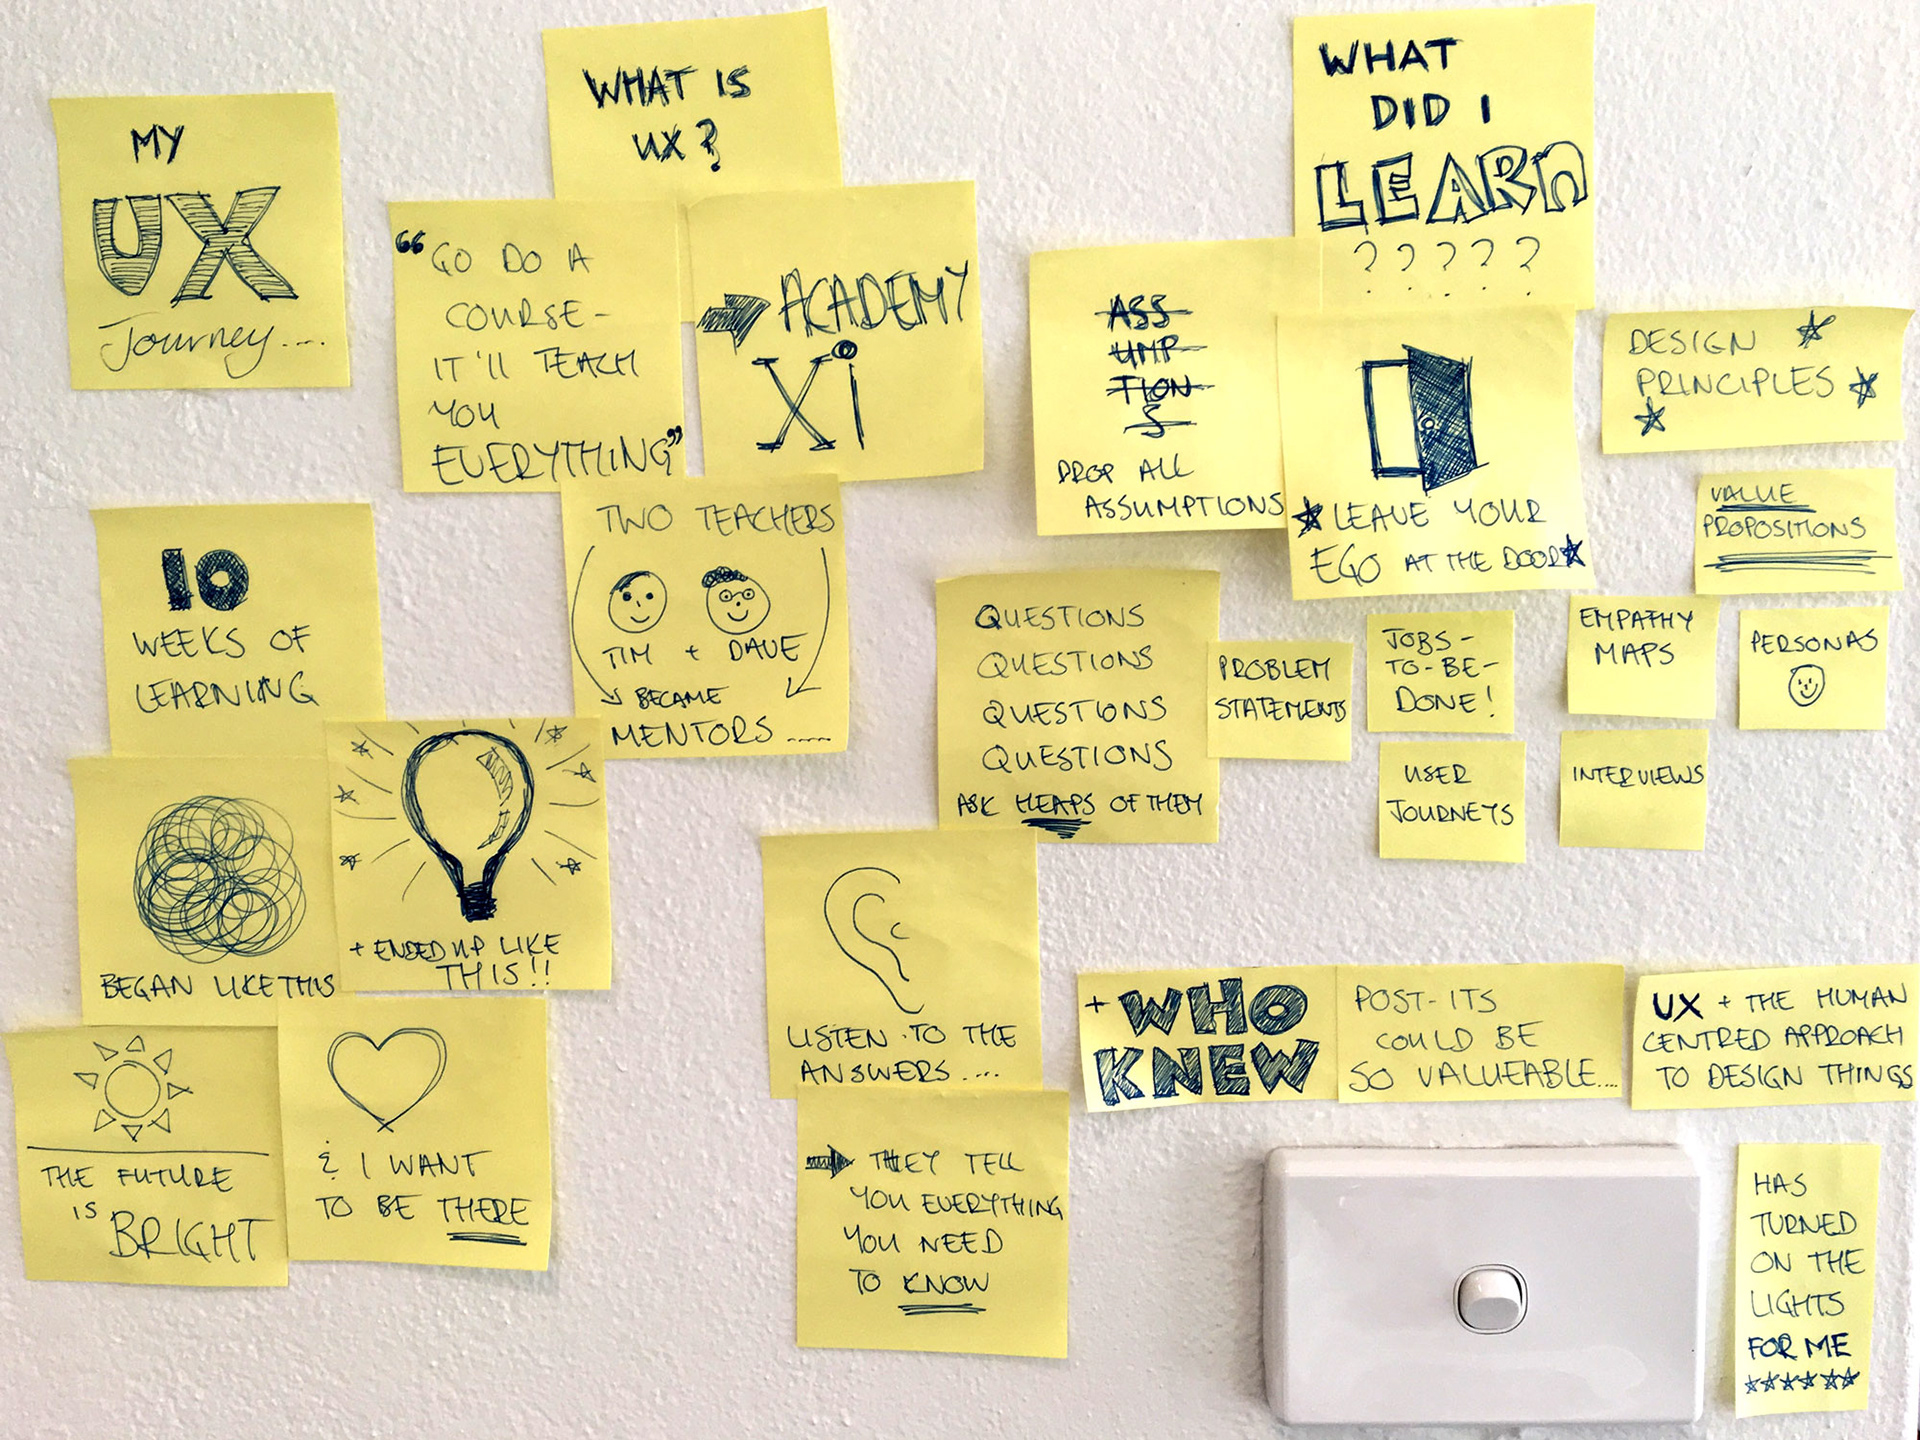 MY
UX
Journey....
WHAT IS
UX?
"GO DO A
COURSE-
IT'll TEACH
YOU
EVERYTHING"
ACADEMY
Xi
TWO TEACHERS
TIM + DAVE
BECAME
MENTORS .....
10
WEEKS OF
LEARNING
BEGAN LIKE THIS
+ ENDED UP LIKE
THIS!!
THE FUTURE
IS
BRIGHT
& I WANT
TO BE THERE
WHAT
DID I
LEARn
?????
ASS
UMP
TION
S
DROP ALL
ASSUMPTIONS
LEAVE YOUR
EGO AT THE DOOR
QUESTIONS
QUESTIONS
QUESTIONS
QUESTIONS
ASK HEAPS OF THEM
LISTEN TO THE
ANSWERS....
THEY TELL
YOU EVERYTHING
YOU NEED
TO KNOW
DESIGN
PRINCIPLES
VALUE
PROPOSITIONS
PROBLEM
STATEMENTS
JOBS-
TO-BE-
DONE!
EMPATHY
MAPS
PERSONAS
USER
JOURNEYS
INTERVIEWS
+ WHO
KNEW
POST-ITS
COULD BE
SO VALUEABLE....
UX + THE HUMAN
CENTRED APPROACH
TO DESIGN THINGS
HAS
TURNED
ON THE
LIGHTS
FOR ME